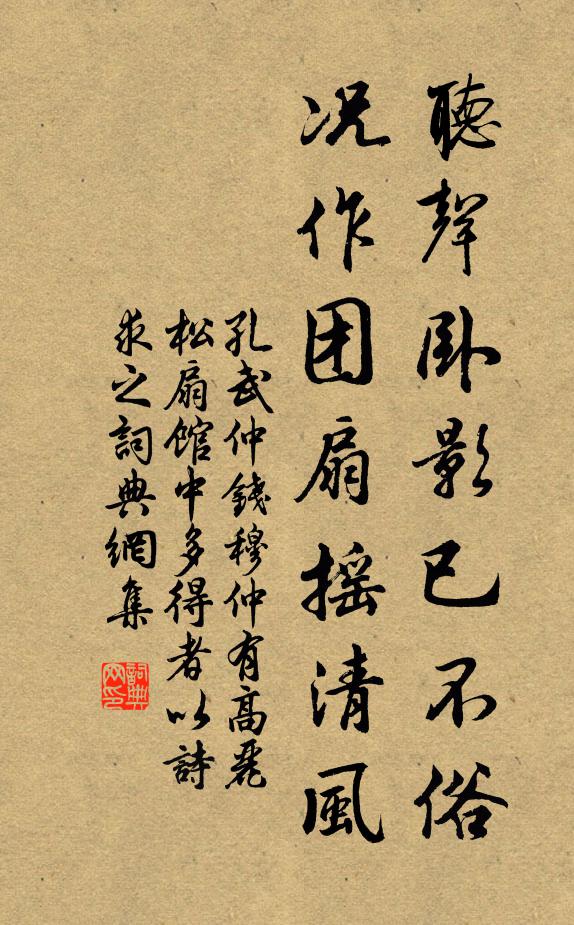 聽聲卧影已不俗
况作团扇摇清風
孔武仲錢穆仲有高麗
松扇館中多得者以詩
求之詞典網集
詞典網印